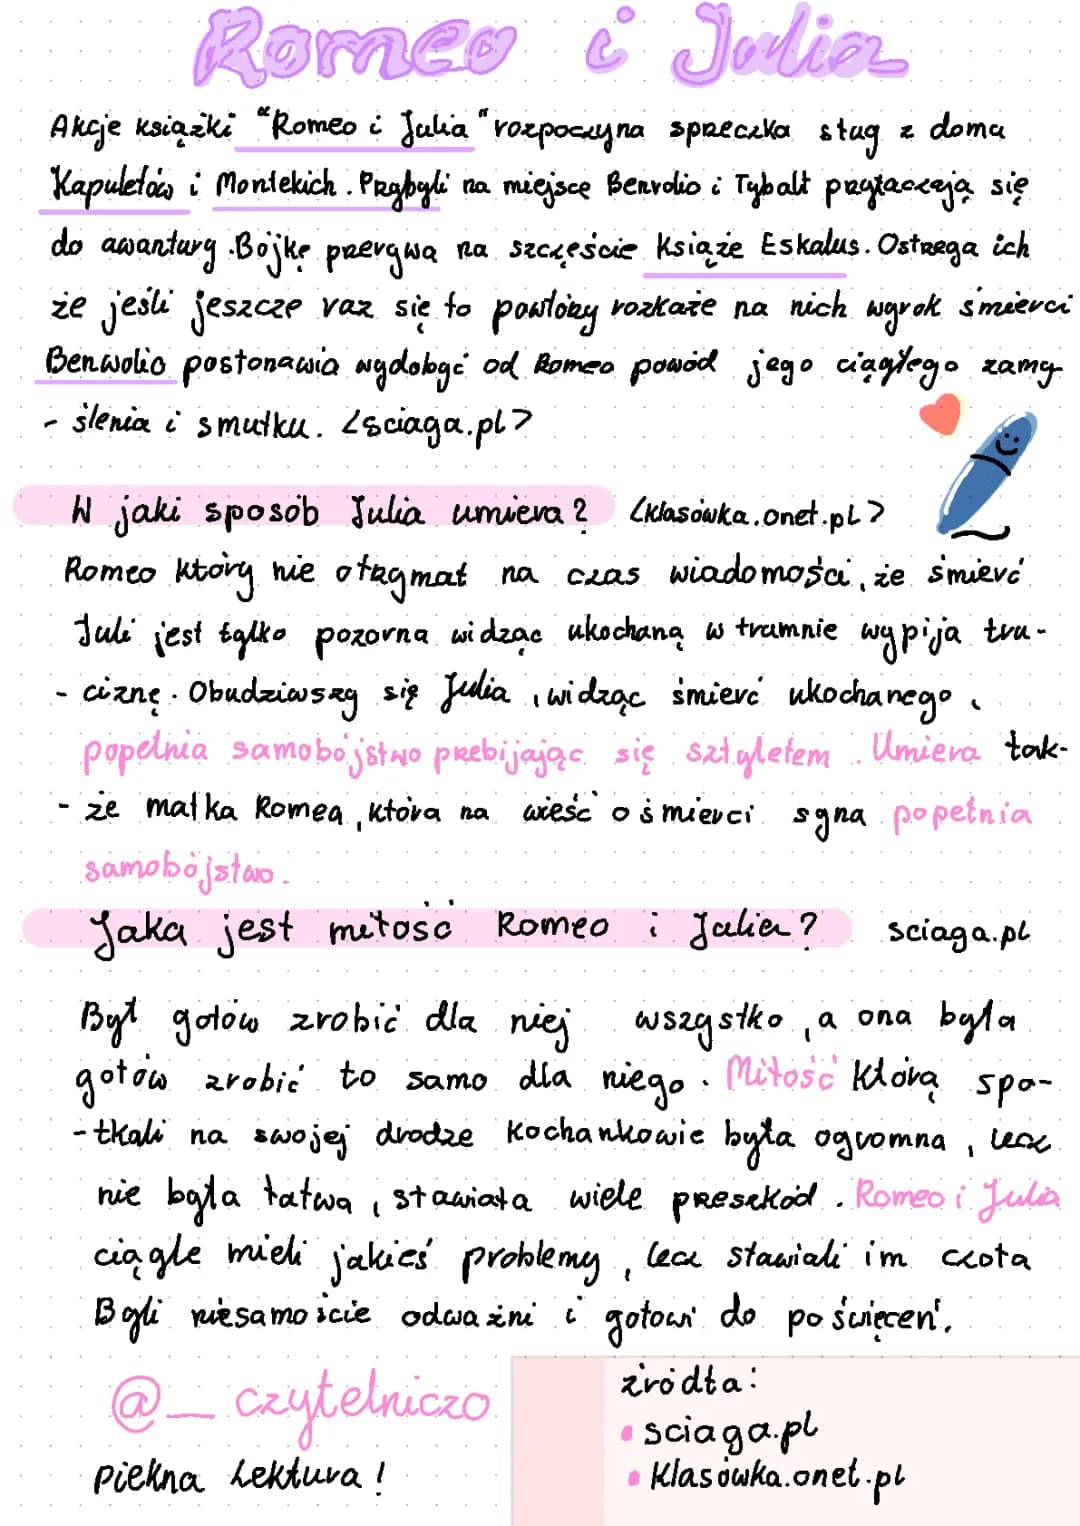 Romeo i Julia
Akcje książki "Romeo i Julia" rozpoczyna spreczka sług z domu
Kapuletów i Montekich. Przybyli na miejsce Benvolio i Tybalt przyłączają się
do awantury. Bójkę przerywa na szczęście Książe Eskalus. Ostrzega ich
że jeśli jeszcze raz się to powtórzy rozkaże na nich wyrok śmierci
Benwolio postonawia wydobyć od Romeo powód jego ciągłego zamy-
- ślenia i smutku. <sciaga.pl>
W jaki sposób Julia umiera? <klasówka.onet.pl>
Romeo który nie otrzymał na czas wiadomości, że śmierć
Juli jest tylko pozorna widząc ukochaną w trumnie wypija tru-
- ciznę. Obudziwszy się Julia, widząc śmierć ukochanego,
popełnia samobójstwo przebijając się sztyletem. Umiera tak-
- że matka Romea, która na wieść o śmierci syna popełnia
samobójstwo.
Jaka jest miłość Romeo i Julia? sciaga.pl
Był gotów zrobić dla niej wszystko, a ona była
gotów zrobić to samo dla niego. Miłość którą spo-
- tkali na swojej drodze kochankowie była ogromna, lecz
nie była łatwa, stawiała wiele przeszkód. Romeo i Julia
ciągle mieli jakieś problemy, lecz stawiali im czoła
Byli niesamoicie odważni i gotowi do poświęceń.
@_czytelniczo
piękna Lektura!
źródła:
• sciaga.pl
• Klasówka.onet.pl